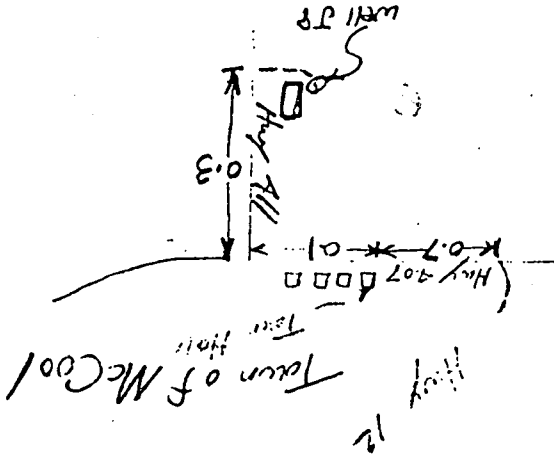 Hwy 12
Town of McCool
Town Hall
Hwy 407
0.7
0.1
0.3
Hwy 411
Well J8